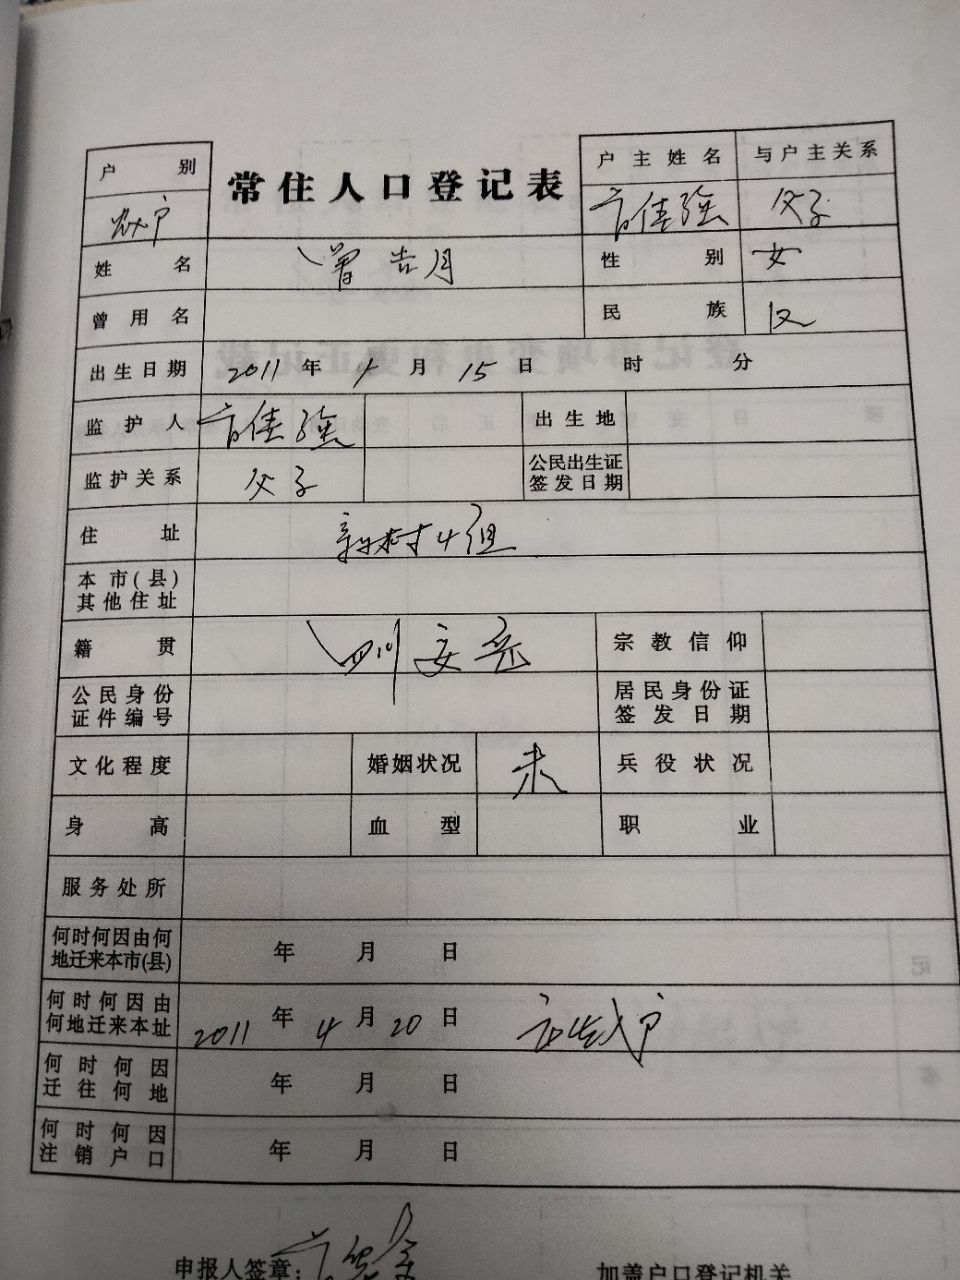 户别
常住人口登记表
户主姓名 与户主关系
农户
佳强 父子
姓名 曾 月
性别 女
曾用名
民族 汉
出生日期 2011年4月15日 时 分
监护人 佳强
出生地
监护关系 父子
公民出生证签发日期
住址 新村4组
本市(县)其他住址
籍贯 四川安岳
宗教信仰
公民身份证件编号
居民身份证签发日期
文化程度
婚姻状况 未
兵役状况
身高
血型
职业
服务处所
何时何因由何地迁来本市(县) 年 月 日
何时何因由何地迁来本址 2011年4月20日 出生入户
何时何因迁往何地 年 月 日
何时何因注销户口 年 月 日
申报人签章:
加盖户口登记机关